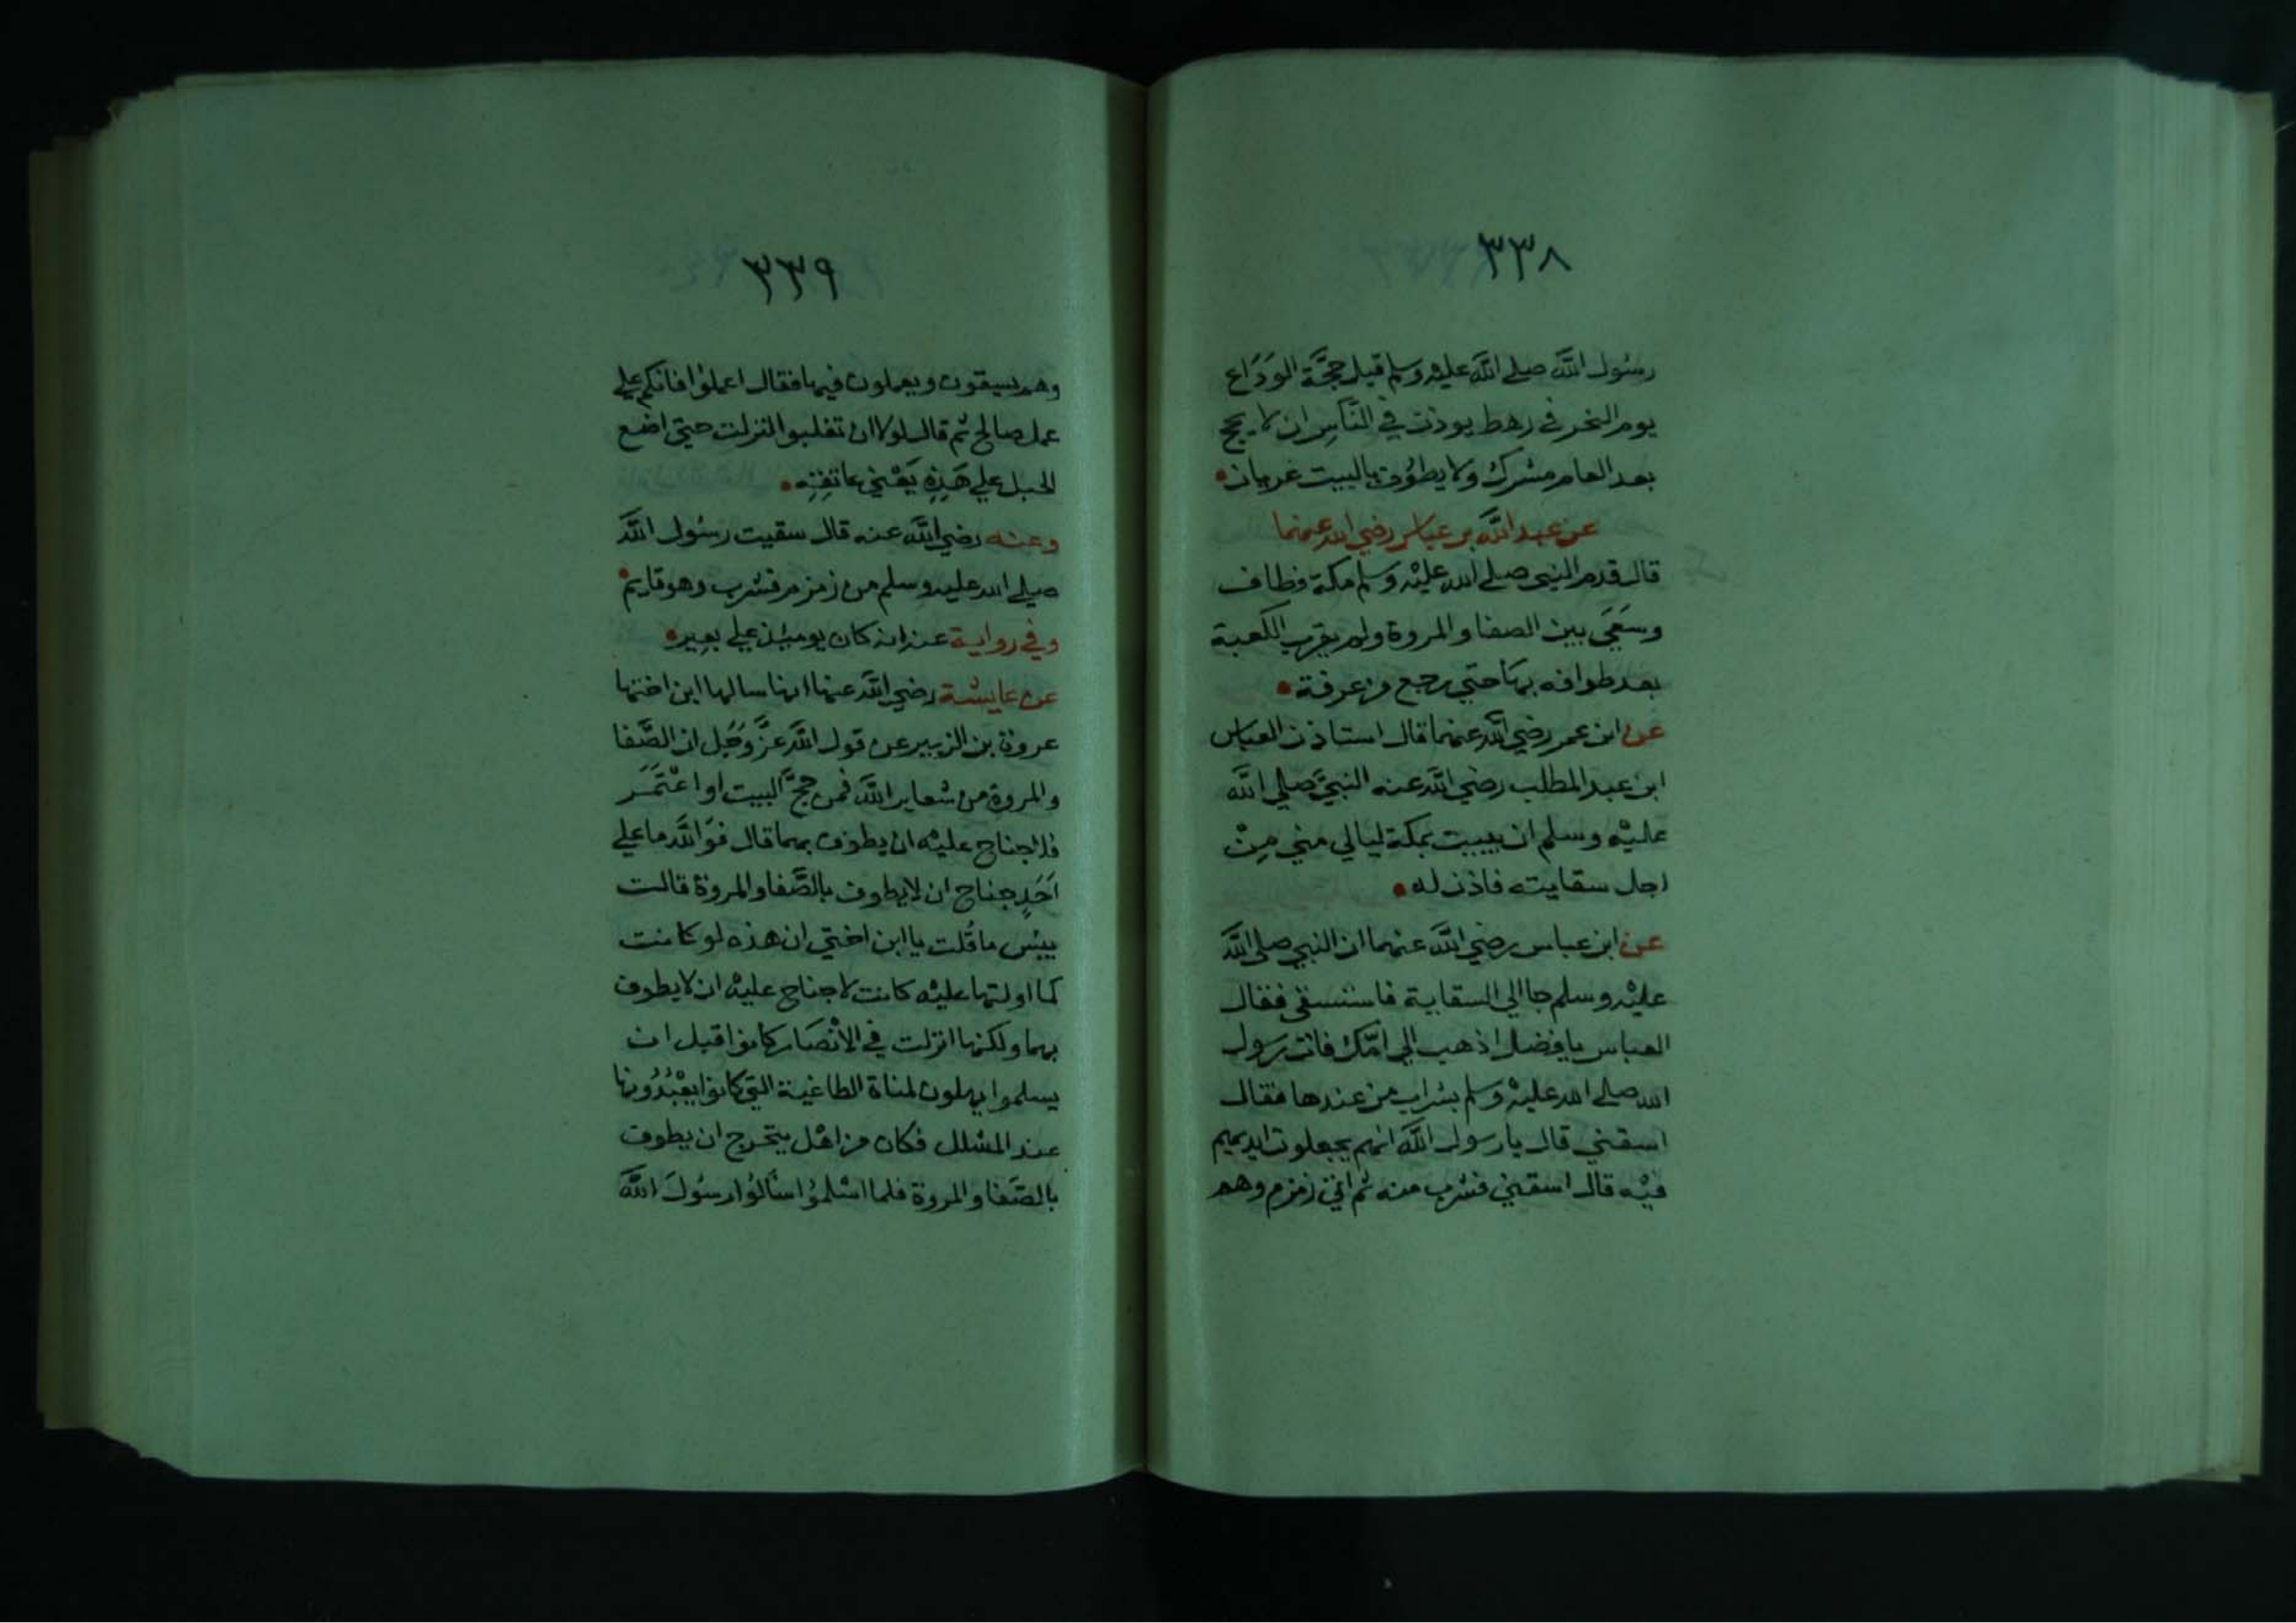 ٣٣٨
رسُول الله صلى الله عليه وسلم قبل حجَّة الوَدَاع
يوم النحر في رهط يوذن في النَّاسِ ان لا يحج
بعد العام مشرك ولا يطوُف بالبيت عريان
عن عبد الله بن عباس رضي الله عنهما
قال قدم النبي صلى الله عليْه وسلم مكة فطاف
وسَعَي بين الصفا والمروة ولم يقرب الكعبة
بعد طوافه بهَا حتي رجع من عرفة
عن ابن عمر رضي الله عنهما قال استاذن العباس
ابن عبد المطلب رضي الله عنه النبيَّ صلي الله
عليْه وسلم ان يبيت بمكة ليالي مني مِنْ
اجل سقايته فاذن له
عن ابن عباس رضي الله عنهما ان النبي صلي الله
عليْه وسلم جا الي السقاية فاستسقى فقال
العباس يا فضل اذهب الي امّك فات رسول
الله صلى الله عليْه وسلم بشراب من عندها فقال
اسقني قال يا رسول الله انهم يجعلون ايديهم
فيْه قال اسقني فشرب منه ثم اتي زمزم وهم
٣٣٩
وهم يسيقون ويعملون فيها فقال اعملوُا فانكم علي
عمل صالح ثم قال لولا ان تغلبوا لنزلت حتي اضع
الحبل علي هَذِهِ يَعْني عاتقِهِ
وعنه رضي الله عنه قال سقيت رسُول الله
صلي الله عليه وسلم من زمزم فشرب وهو قايم
وفي رواية عنه انه كان يوميُذ علي بعِير
عن عايشة رضي الله عنها انها سالها ابن اختها
عروة بن الزبير عن قول الله عزَّ وجَل ان الصَّفا
والمروة من شعاير الله فمن حجَّ البيت او اعْتَمَر
فلا جناح عليْه ان يطوف بهما قال فوَالله ما علي
اَحَدٍ جناح ان لا يطوف بالصَّفا والمروة قالت
بيئس ما قُلت يا ابن اختي ان هذه لو كانت
كما اولتها عليْه كانت لا جناح عليْه ان لا يطوف
بهما ولكنها انزلت في الانْصَار كانوُا قبل ان
يسلموا يهلون لمناة الطاغية التي كانوُا يعْبُدُونها
عند المشلل فكان من اهْل يتحرج ان يطوف
بالصَّفا والمروة فلما اسْلموُا اسْالوُا رسُولَ الله